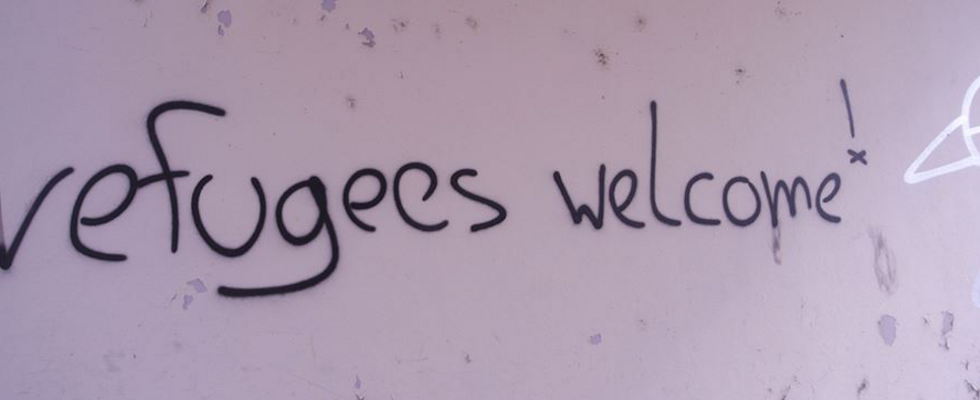 refugees welcome!